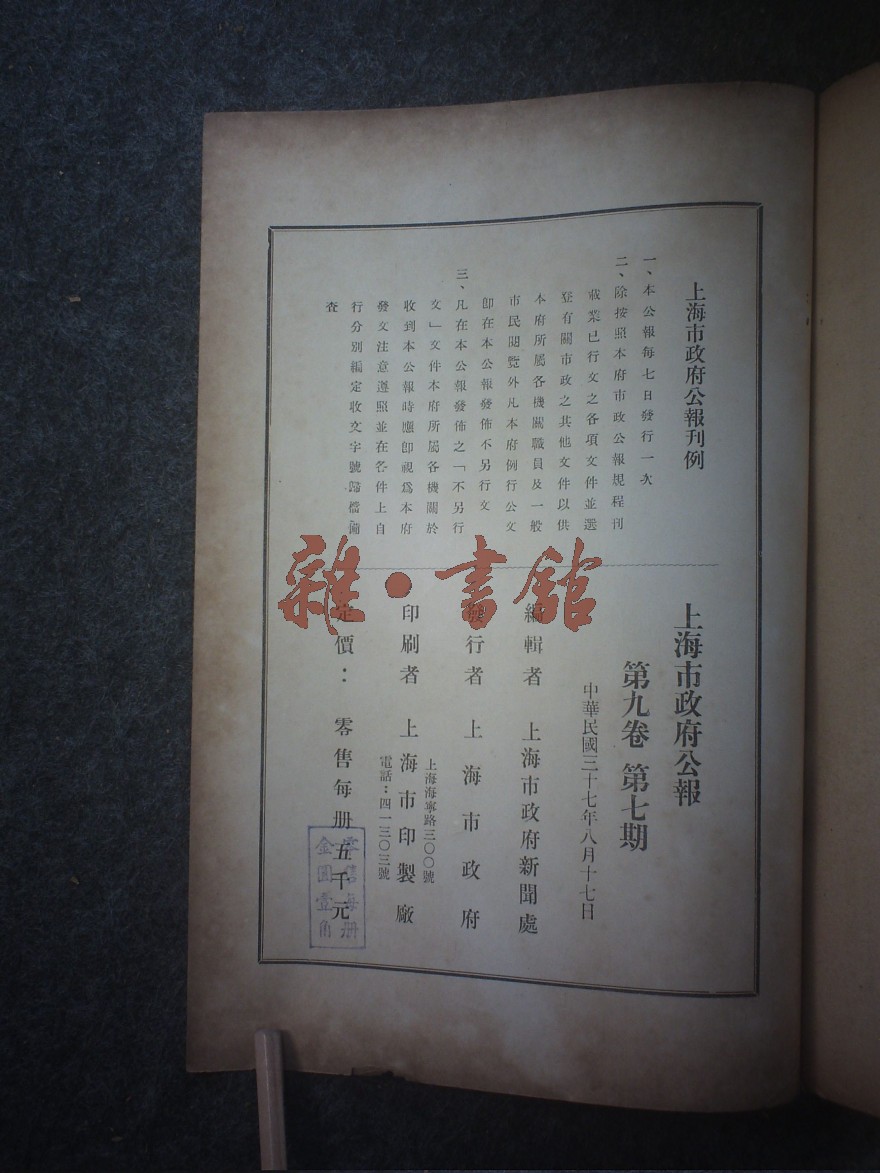 上海市政府公報刊例
一、本公報每七日發行一次
二、除按照本府市政公報規程刊
載業已行文之各項文件並選
登有關市政之其他文件以供
本府所屬各機關職員及一般
市民閱覽外凡本府例行公文
卽在本公報發佈不另行文
三、凡在本公報發佈之「不另行
文」文件本府所屬各機關於
收到本公報時應卽視爲本府
發文注意遵照並在各件上自
行分別編定收文字號歸檔備
查
上海市政府公報
第九卷 第七期
中華民國三十七年八月十七日
編輯者 上海市政府新聞處
發行者 上海市政府
印刷者 上海市印製廠
上海海寧路三〇〇號
電話：四一三〇三號
定價：零售每册五千元
零售每册
金圓壹角
雜·書館